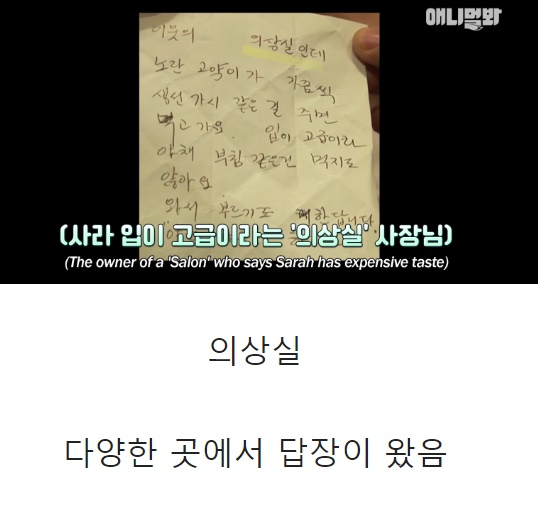 애니멀봐
이웃의 의상실인데
노란 고양이가 가끔씩
생선 가시 같은 걸 주면
먹고 가요. 입이 고급이라
야채 부침 같은건 먹지도
않아요
와서 부르기도 한답니다
(사라 입이 고급이라는 '의상실' 사장님)
(The owner of a 'Salon' who says Sarah has expensive taste)
의상실
다양한 곳에서 답장이 왔음